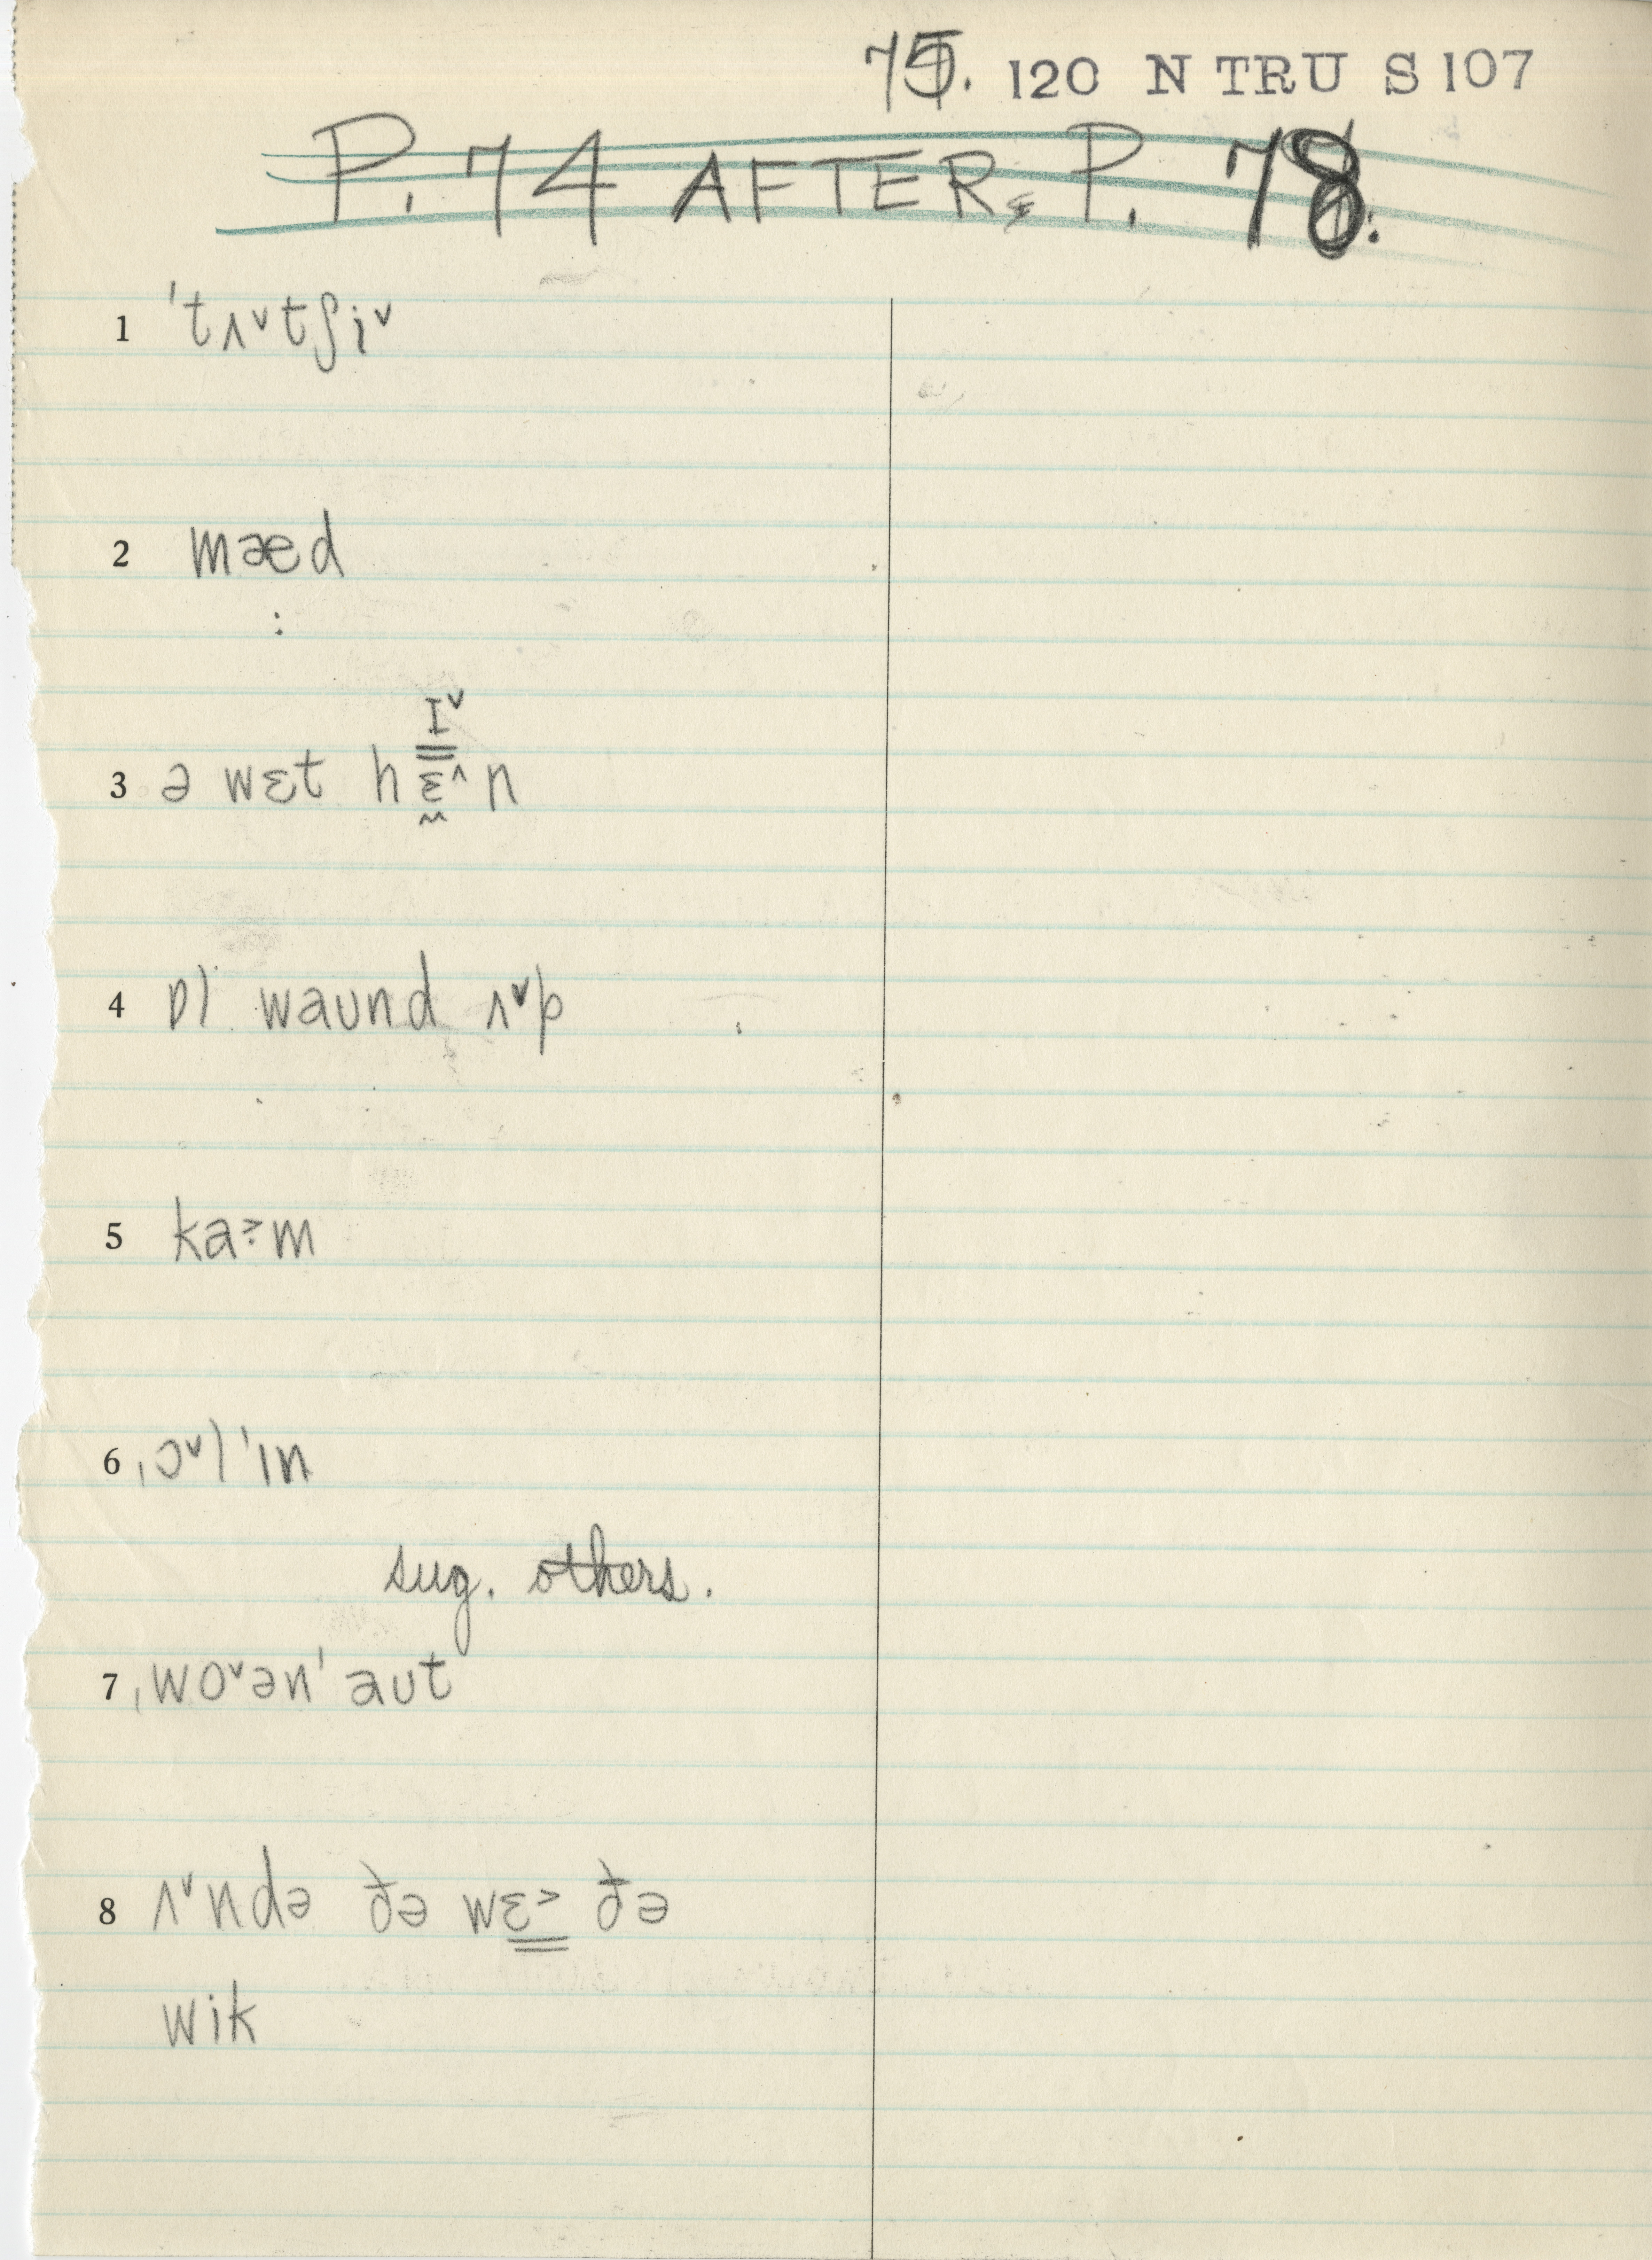 75. 120 N TRU S 107
P. 74 AFTER P. 78.
1 ˈtʌ˅tʃi˅
2 mæd
:
I˅
3 ə wɛt hɛ˄n
4 ɒl waʊnd ʌ˅p
5 ka˃·m
6 ˌɔ˅lˈɪn
sug. others.
7 ˌwo˅ənˈaʊt
8 ʌ˅ndə ðə wɛ˃ðə
wik